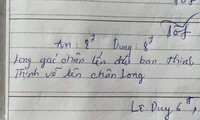 An : 8đ Duy : 8đ
Long gác chân lên đùi bạn Thịnh,
Thịnh vỗ lên chân Long
Lê Duy 6đ,